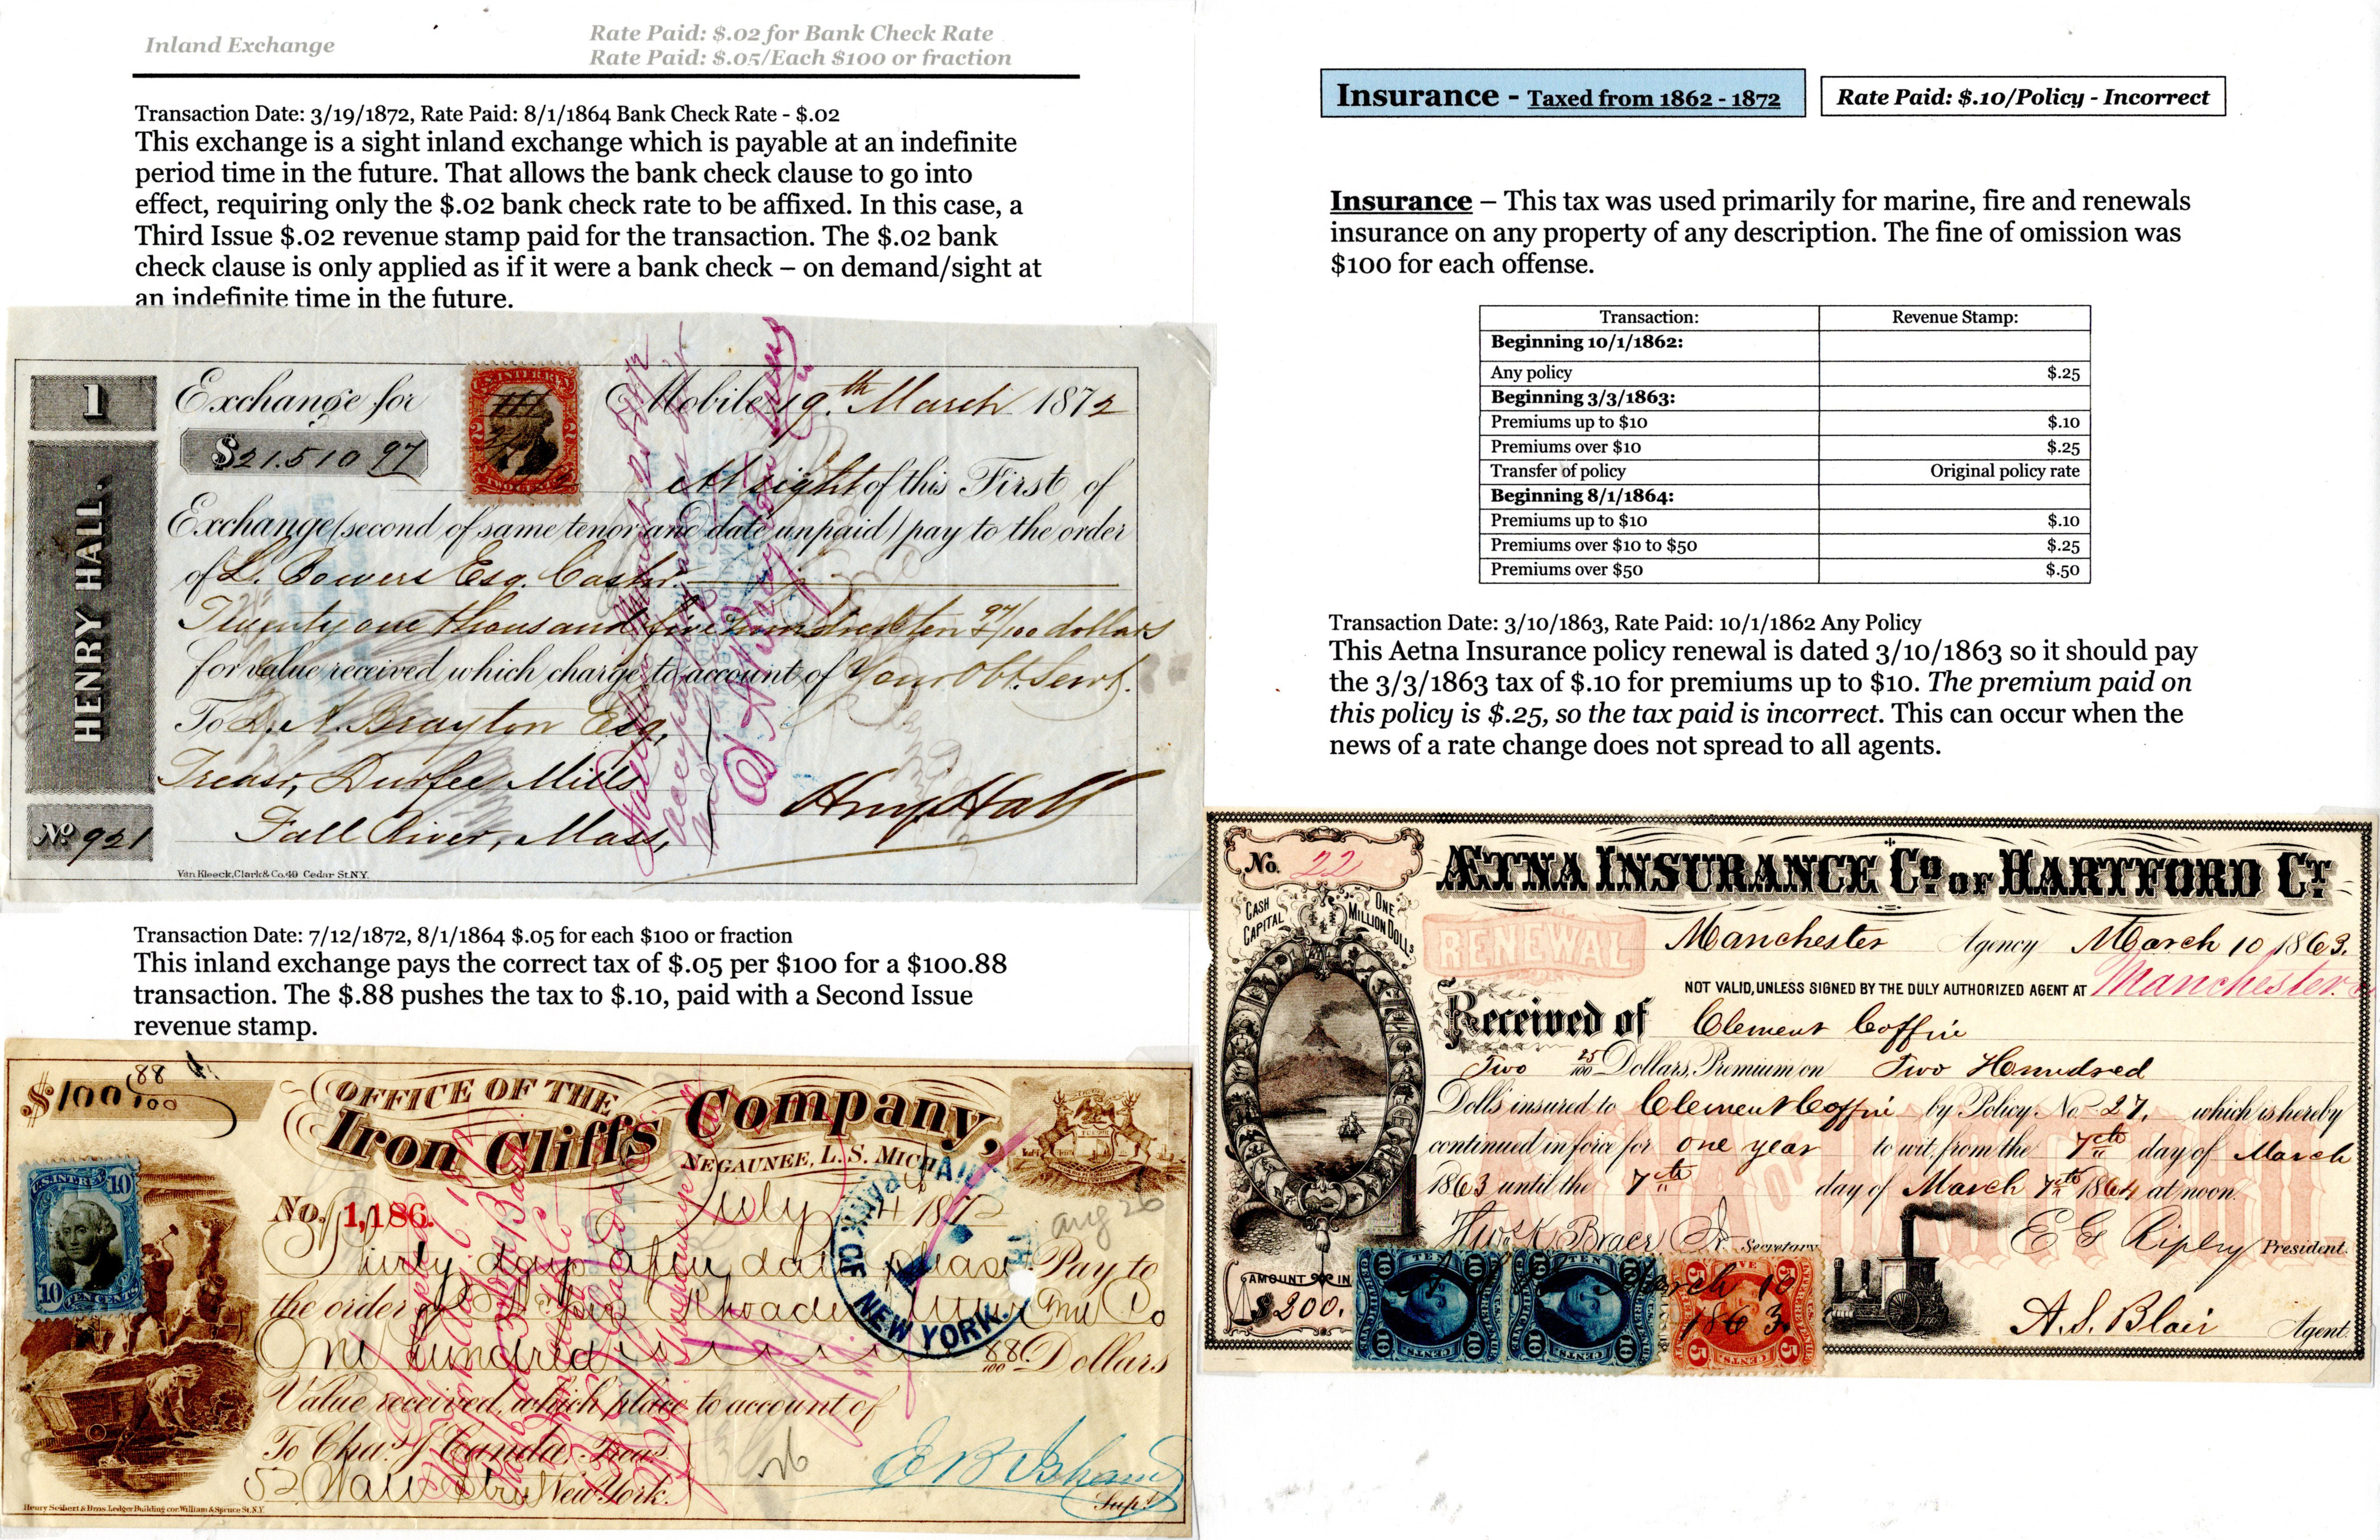 Inland Exchange
Rate Paid: $.02 for Bank Check Rate
Rate Paid: $.05/Each $100 or fraction
Transaction Date: 3/19/1872, Rate Paid: 8/1/1864 Bank Check Rate - $.02
This exchange is a sight inland exchange which is payable at an indefinite
period time in the future. That allows the bank check clause to go into
effect, requiring only the $.02 bank check rate to be affixed. In this case, a
Third Issue $.02 revenue stamp paid for the transaction. The $.02 bank
check clause is only applied as if it were a bank check – on demand/sight at
an indefinite time in the future.
1
HENRY HALL.
No 921
Exchange for
Mobile, 19th March 1872
$21.510 97
At sight of this First of
Exchange (second of same tenor and date unpaid) pay to the order
of L. Bowers Esq. Cashr.
Twenty one thousand five hundred ten 97/100 dollars
for value received which charge to account of Your Obt. Servt.
To D. A. Brayton Esq,
Treasr, Durfee Mills
Fall River, Mass,
Henry Hall
Van Kleeck, Clark & Co. 40 Cedar St. N.Y.
Transaction Date: 7/12/1872, 8/1/1864 $.05 for each $100 or fraction
This inland exchange pays the correct tax of $.05 per $100 for a $100.88
transaction. The $.88 pushes the tax to $.10, paid with a Second Issue
revenue stamp.
$100 88/100
OFFICE OF THE
Iron Cliffs Company,
NEGAUNEE, L. S. MICH
No. 1,186.
July 1872
aug 26
Thirty days after date please Pay to
the order of
One hundred 88/100 Dollars
Value received, which place to account of
To Chas. J. Canda, Treas.
52 Wall Street New York.
E B Isham
Supt.
NEW YORK.
10
10
TEN CENTS
Henry Seibert & Bros. Ledger Building cor. William & Spruce St. N.Y.
Insurance - Taxed from 1862 - 1872
Rate Paid: $.10/Policy - Incorrect
Insurance – This tax was used primarily for marine, fire and renewals
insurance on any property of any description. The fine of omission was
$100 for each offense.
Transaction: Revenue Stamp:
Beginning 10/1/1862:
Any policy $.25
Beginning 3/3/1863:
Premiums up to $10 $.10
Premiums over $10 $.25
Transfer of policy Original policy rate
Beginning 8/1/1864:
Premiums up to $10 $.10
Premiums over $10 to $50 $.25
Premiums over $50 $.50
Transaction Date: 3/10/1863, Rate Paid: 10/1/1862 Any Policy
This Aetna Insurance policy renewal is dated 3/10/1863 so it should pay
the 3/3/1863 tax of $.10 for premiums up to $10. The premium paid on
this policy is $.25, so the tax paid is incorrect. This can occur when the
news of a rate change does not spread to all agents.
No. 22
ÆTNA INSURANCE Co. OF HARTFORD CT.
CASH CAPITAL ONE MILLION DOLLS
RENEWAL
Manchester Agency March 10 1863.
NOT VALID, UNLESS SIGNED BY THE DULY AUTHORIZED AGENT AT Manchester.
Received of Clement Coffin
Two 25/100 Dollars, Premium on Two Hundred
Dolls insured to Clement Coffin by Policy No. 27, which is hereby
continued in force for one year to wit, from the 7th day of March
1863 until the 7th day of March 7th 1864 at noon.
Secretary
E G Ripley President.
AMOUNT IN
$200.
TEN
10
CENTS
TEN
10
CENTS
FIVE
5
CENTS
March 10
1863
A. S. Blair Agent.